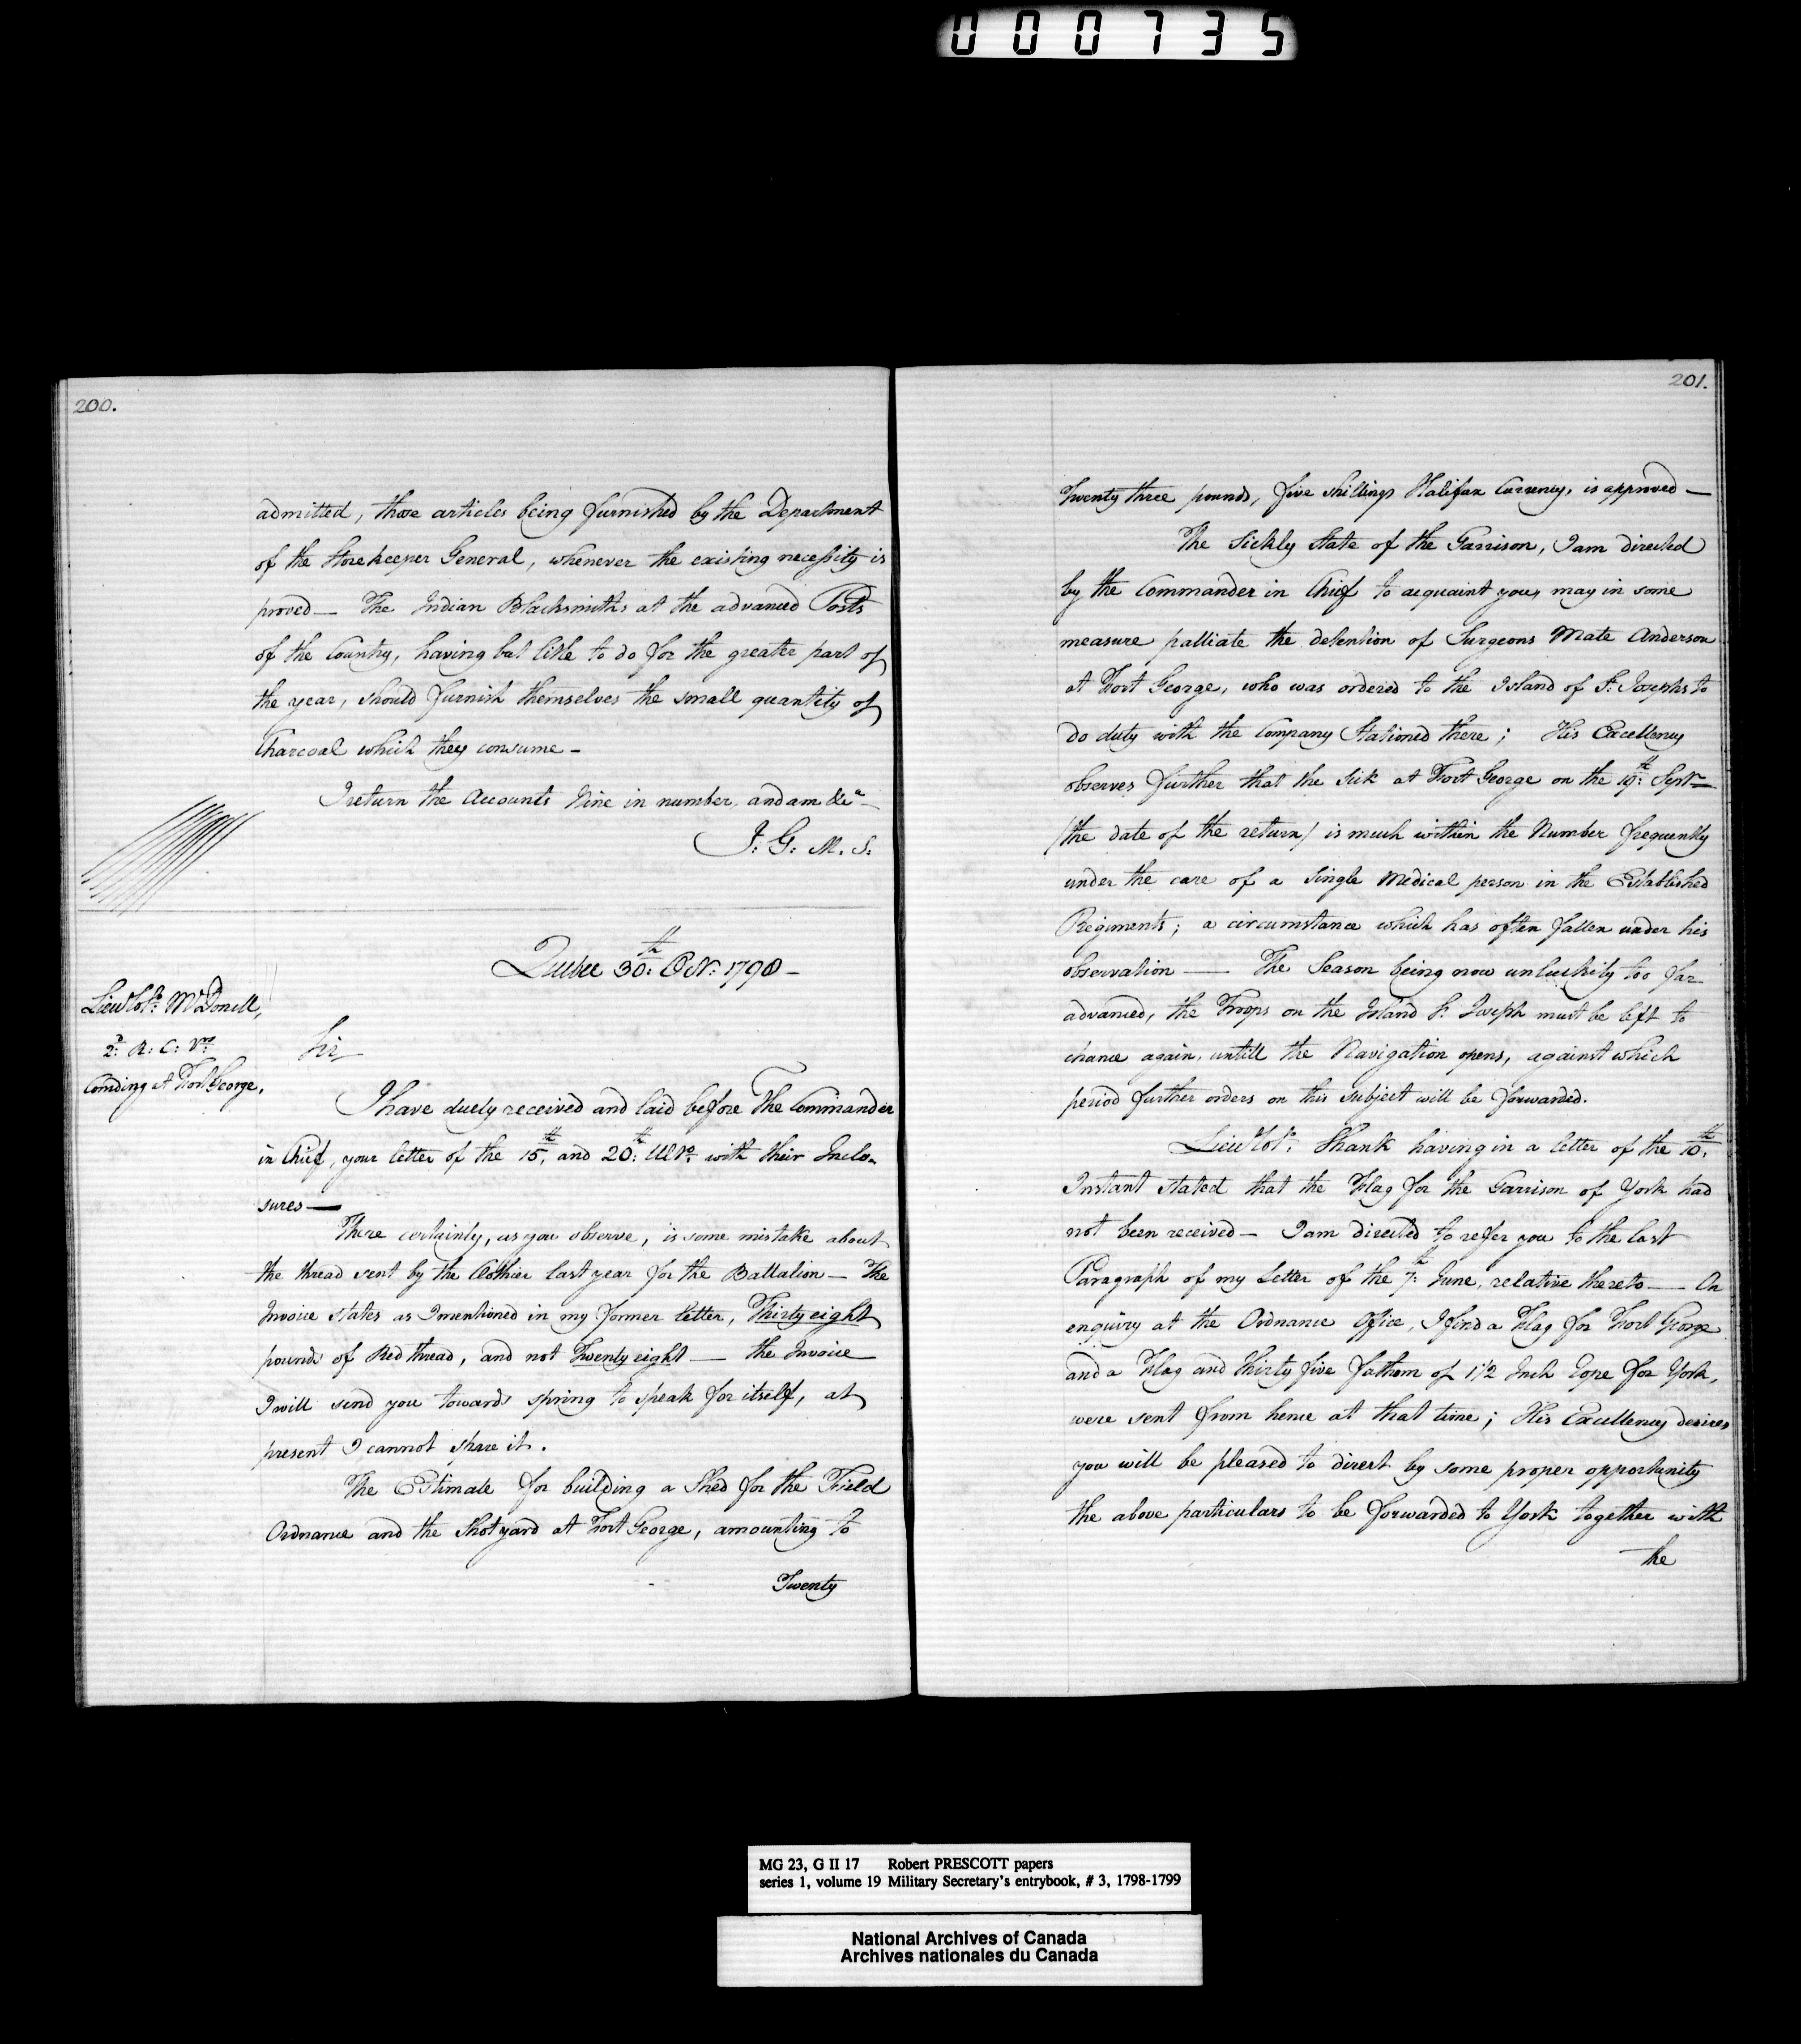 000735
200.
admitted, those articles being furnished by the Department
of the Storekeeper General, whenever the existing necessity is
proved — The Indian Blacksmiths at the advanced Posts
of the Country, having but little to do for the greater part of
the year, should furnish themselves the small quantity of
Charcoal which they consume —
I return the Accounts Nine in number, and am &ca —
J: G: M. S.
Quebec 30th: Octr: 1798 —
Lieut Coll: McDonell,
2d: R: C: Vrs
Comding at Fort George.
Sir
I have duely received and laid before The Commander
in Chief, your letter of the 15th, and 20th: Ulto: with their Inclo-
sures —
There certainly, as you observe, is some mistake about
the thread sent by the Clothier last year for the Battalion — The
Invoice states as I mentioned in my former letter, Thirty eight
pounds of Red thread, and not Twenty eight — the Invoice
I will send you towards spring to speak for itself, at
present I cannot spare it.
The Estimate for building a Shed for the Field
Ordnance and the Shot yard at Fort George, amounting to
Twenty
201.
Twenty three pounds, five shillings Halifax Currency, is approved —
The Sickly State of the Garrison, I am directed
by the Commander in Chief to acquaint you, may in some
measure palliate the detention of Surgeons Mate Anderson
at Fort George, who was ordered to the Island of St. Josephs to
do duty with the Company Stationed there; His Excellency
observes further that the Sick at Fort George on the 19th: Septr —
/the date of the return/ is much within the Number frequently
under the care of a Single Medical person in the Established
Regiments; a circumstance which has often fallen under his
observation — The Season being now unluckily too far
advanced, the Troops on the Island St. Joseph must be left to
chance again, untill the Navigation opens, against which
period further orders on this subject will be forwarded.
Lieut Col: Shank having in a letter of the 10th:
Instant stated that the Flag for the Garrison of York had
not been received — I am directed to refer you to the last
Paragraph of my Letter of the 7th: June, relative thereto — On
enquiry at the Ordnance Office, I find a Flag for Fort George
and a Flag and Thirty five fathom of 1 1/2 Inch Rope for York,
were sent from hence at that time; His Excellency desires
you will be pleased to direct by some proper opportunity
the above particulars to be forwarded to York together with
the
MG 23, G II 17 Robert PRESCOTT papers
series 1, volume 19 Military Secretary's entrybook, # 3, 1798-1799
National Archives of Canada
Archives nationales du Canada